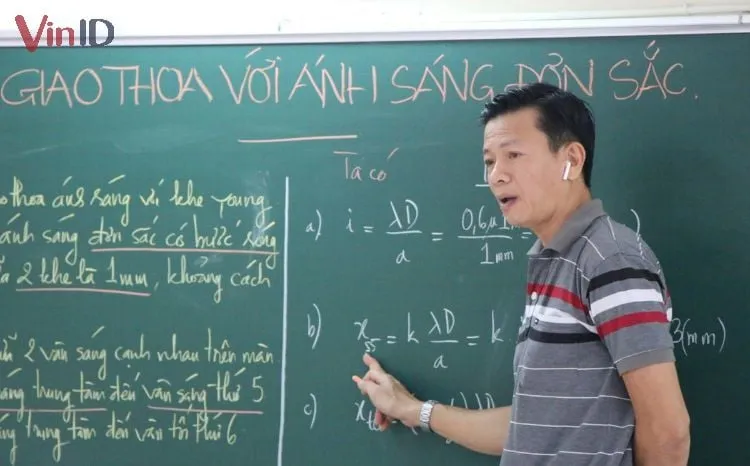 VinID
GIAO THOA VỚI ÁNH SÁNG ĐƠN SẮC.
Ta có
thoa ánh sáng với khe young
ánh sáng đơn sắc có bước sóng
2 khe là 1mm, khoảng cách
2 vân sáng cạnh nhau trên màn
sáng trung tâm đến vân sáng thứ 5
trung tâm đến vân tối thứ 6
a) i = λD/a = 0,6.
1mm
b) x_s5 = k λD/a = k
3(mm)
c) x_t
λD